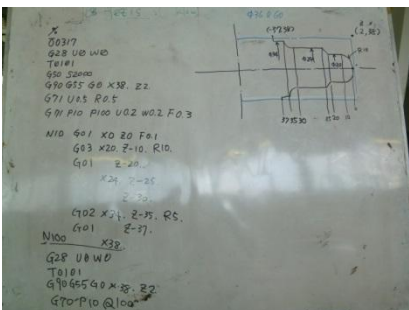 %
O0317
G28 U0 W0
T0101
G50 S2000
G90 G55 G0 X38. Z2
G71 U0.5 R0.5
G71 P10 P100 U0.2 W0.2 F0.3
N10 G01 X0 Z0 F0.1
G03 X20. Z-10. R10.
G01 Z-20.
X24. Z-25
Z-30.
G02 X34. Z-35. R5.
G01 Z-37.
N100 X38.
G28 U0 W0
T0101
G90 G55 G0 X38. Z2
G70 P10 Q100
(-37,38)
(2,38)
R10
373530